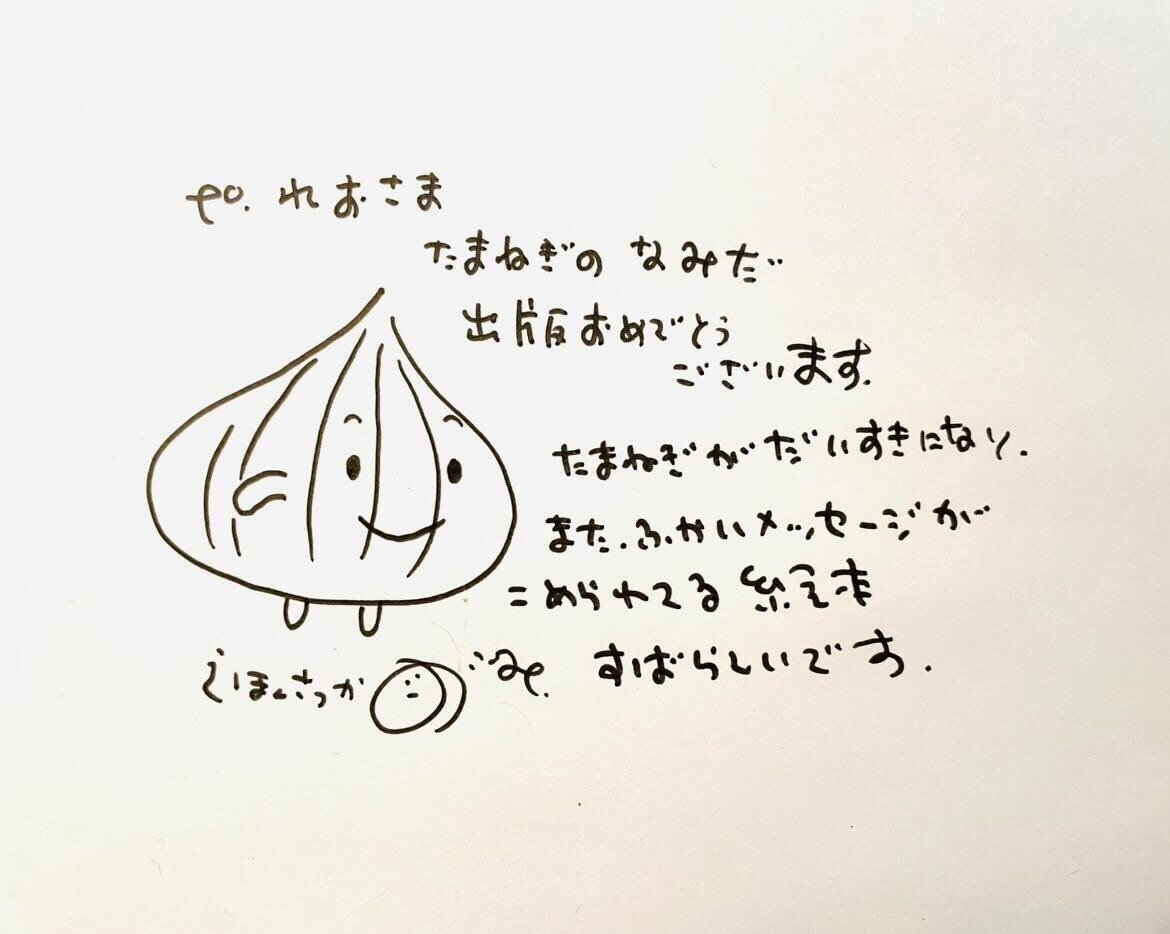 れおさま
たまねぎの なみだ
出版おめでとう
ございます.
たまねぎがだいすきになり.
また.ふかいメッセージが
こめられてる 絵本
すばらしいです.
えほんさっか